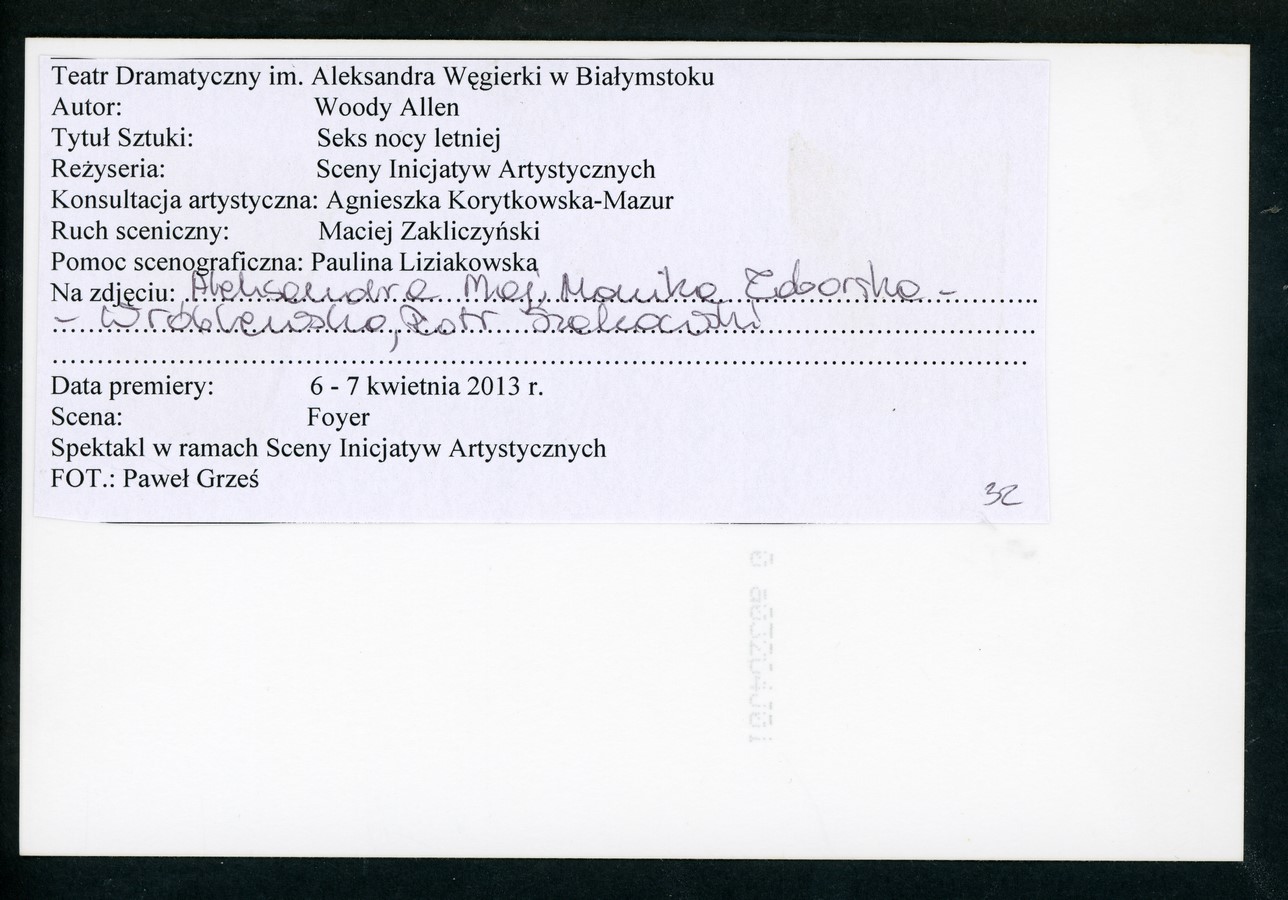 Teatr Dramatyczny im. Aleksandra Węgierki w Białymstoku
Autor: Woody Allen
Tytuł Sztuki: Seks nocy letniej
Reżyseria: Sceny Inicjatyw Artystycznych
Konsultacja artystyczna: Agnieszka Korytkowska-Mazur
Ruch sceniczny: Maciej Zakliczyński
Pomoc scenograficzna: Paulina Liziakowska
Na zdjęciu: Aleksandra Maj, Monika Zaborska -
- Wróblewska, Piotr Szekowski
Data premiery: 6 - 7 kwietnia 2013 r.
Scena: Foyer
Spektakl w ramach Sceny Inicjatyw Artystycznych
FOT.: Paweł Grześ
32